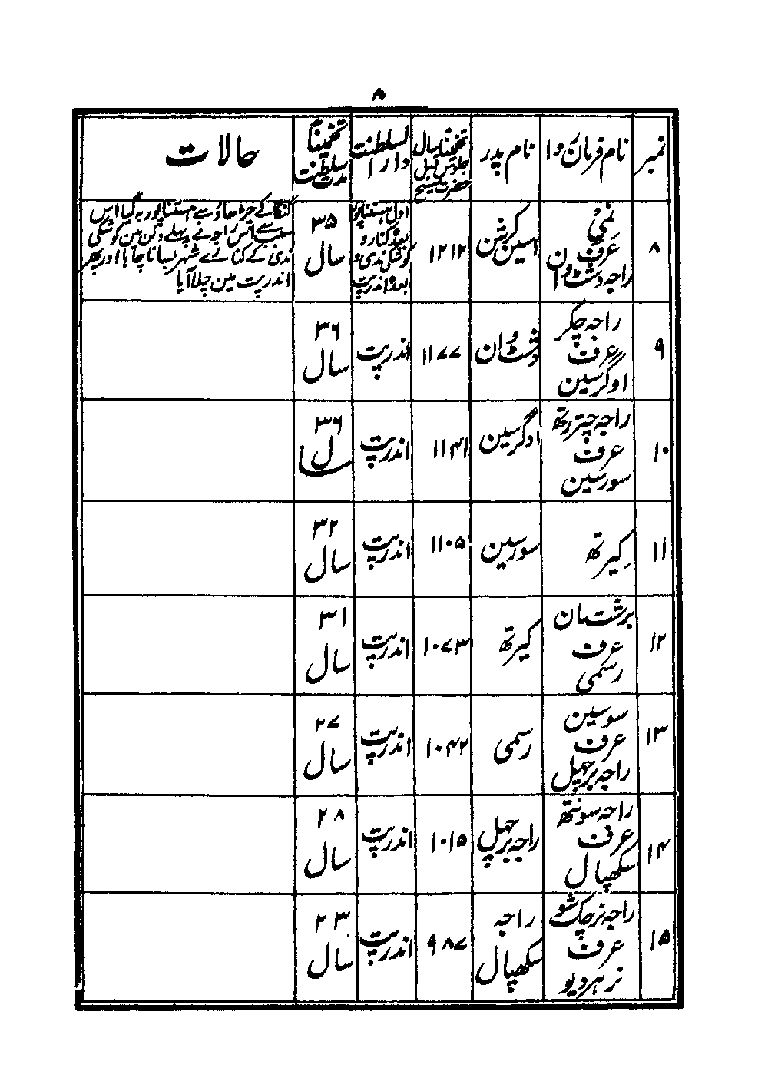 ۸
نمبر
نام فرمان روا
نام پدر
تخمیناً سال
جلوس قبل
حضرت مسیح
دارالسلطنت
تخمیناً
مدت
سلطنت
حالات
۸
نمی
عرف
راجہ دشٹ وان
اسین کرشن
۱۲۱۲
اول ہستناپور
بعدہ کنارہ
کوشکی ندی و
بعدہ اندرپت
۳۵
سال
گنگا کے چڑھاؤ سے ہستناپور بہ گیا اس
سبب سے اس راجہ نے پہلے دکن مین کوشکی
ندی کے کنارے شہر بسانا چاہا اور پھر
اندرپت مین چلا آیا
۹
راجہ چکر
عرف
اوگرسین
دشٹ وان
۱۱۷۷
اندرپت
۳۶
سال
۱۰
راجہ چتررتھ
عرف
سورسین
اوگرسین
۱۱۴۱
اندرپت
۳۶
سال
۱۱
کیرتھ
سورسین
۱۱۰۵
اندرپت
۳۲
سال
۱۲
برشٹ مان
عرف
رسمی
کیرتھ
۱۰۷۳
اندرپت
۳۱
سال
۱۳
سوسین
عرف
راجہ برچھل
رسمی
۱۰۴۲
اندرپت
۲۷
سال
۱۴
راجہ سونتھ
عرف
سکھپال
راجہ برچھل
۱۰۱۵
اندرپت
۲۸
سال
۱۵
راجہ نرچکشو
عرف
نرہردیو
راجہ
سکھپال
۹۸۷
اندرپت
۲۳
سال